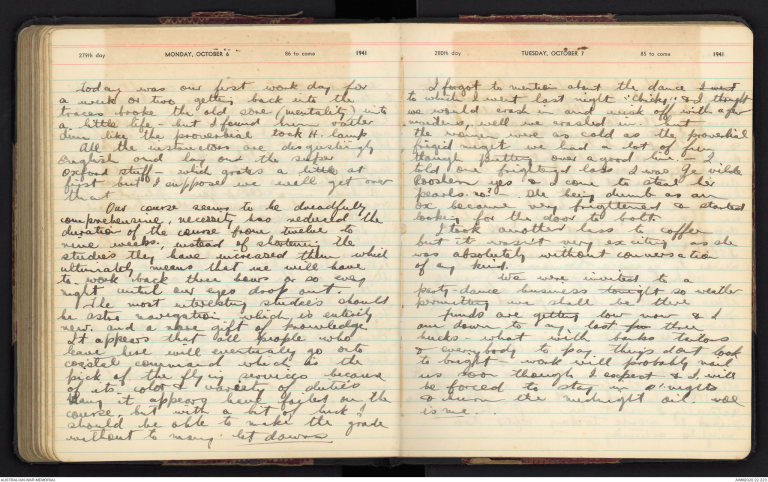 279th day MONDAY, OCTOBER 6 86 to come 1941
today was our first work day for
a week or two, getting back into the
traces broke the old sore (mentality) into
a little life but I found him rather
dim like the proverbial tock H. lamp
All the instructors are disgustingly
English and lay on the super
Oxford stuff - which grates a little at
first but I suppose we will get over
that.
Our course seems to be dreadfully
comprehensive, necessity has reduced the
duration of the course from twelve to
nine weeks, instead of shortening the
studies they have increased them which
ultimately means that we will have
to work back three hours or so every
night until our eyes drop out.
The most interesting studies should
be astro navigation which is entirely
new and a nice gift of knowledge.
It appears that all people who
leave here will eventually go onto
coastal command which is the
pick of the flying services because
of its lot & variety of duties
Many it appears have failed on the
course, but with a bit of luck I
should be able to make the grade
without to many let downs
280th day TUESDAY, OCTOBER 7 85 to come 1941
I forgot to mention about the dance I went
to which I went last night "Chicky" & I thought
we would crash in and risk off with a few
murders, well we crashed in but
the women were as cold as the proverbial
frigid night we had a lot of fun
though putting over a good line - I
told one frightened lass I was Ye wilde
Colonial yes & I come to steal her
pearls. no! She being dumb as an
ox became very frightened & started
looking for the door to bolt
I took another lass to coffee
but it wasn't very exciting as she
was absolutely without conversation
of any kind.
We were invited to a
party-dance business tonight so weather
permitting we shall be there
Funds are getting low now & I
am down to my last three
bucks - what with banks tailors
& everybody to pay things dont look
to bright - work will probably nail
us soon though I expect & I will
be forced to stay in o'nights
& burn the midnight oil woe
is me ...
AUSTRALIAN WAR MEMORIAL